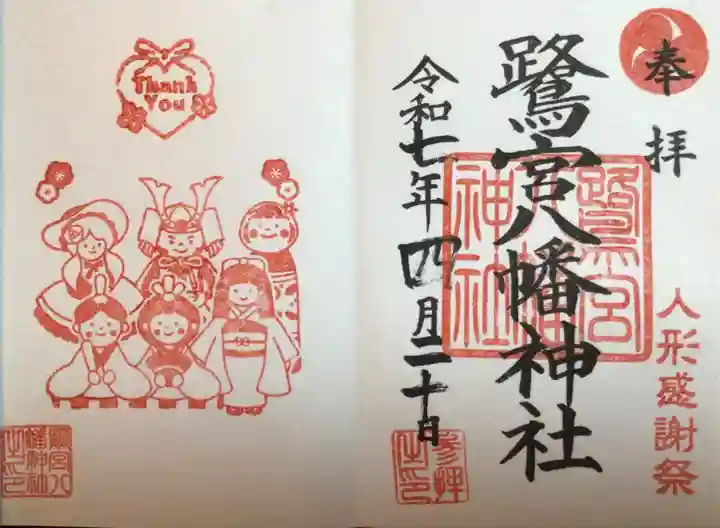 奉拝
鷺宮八幡神社
鷺宮八幡神社
令和七年四月二十日
人形感謝祭
参拝之印
Thank
You